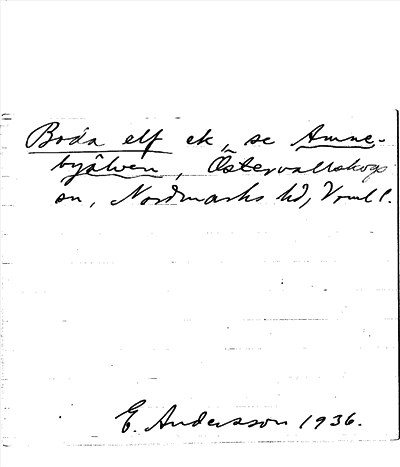 Boda elf ek, se Amne-
byälven, Östervallskogs
sn, Nordmarks hd, Vrml.
E. Andersson 1936.